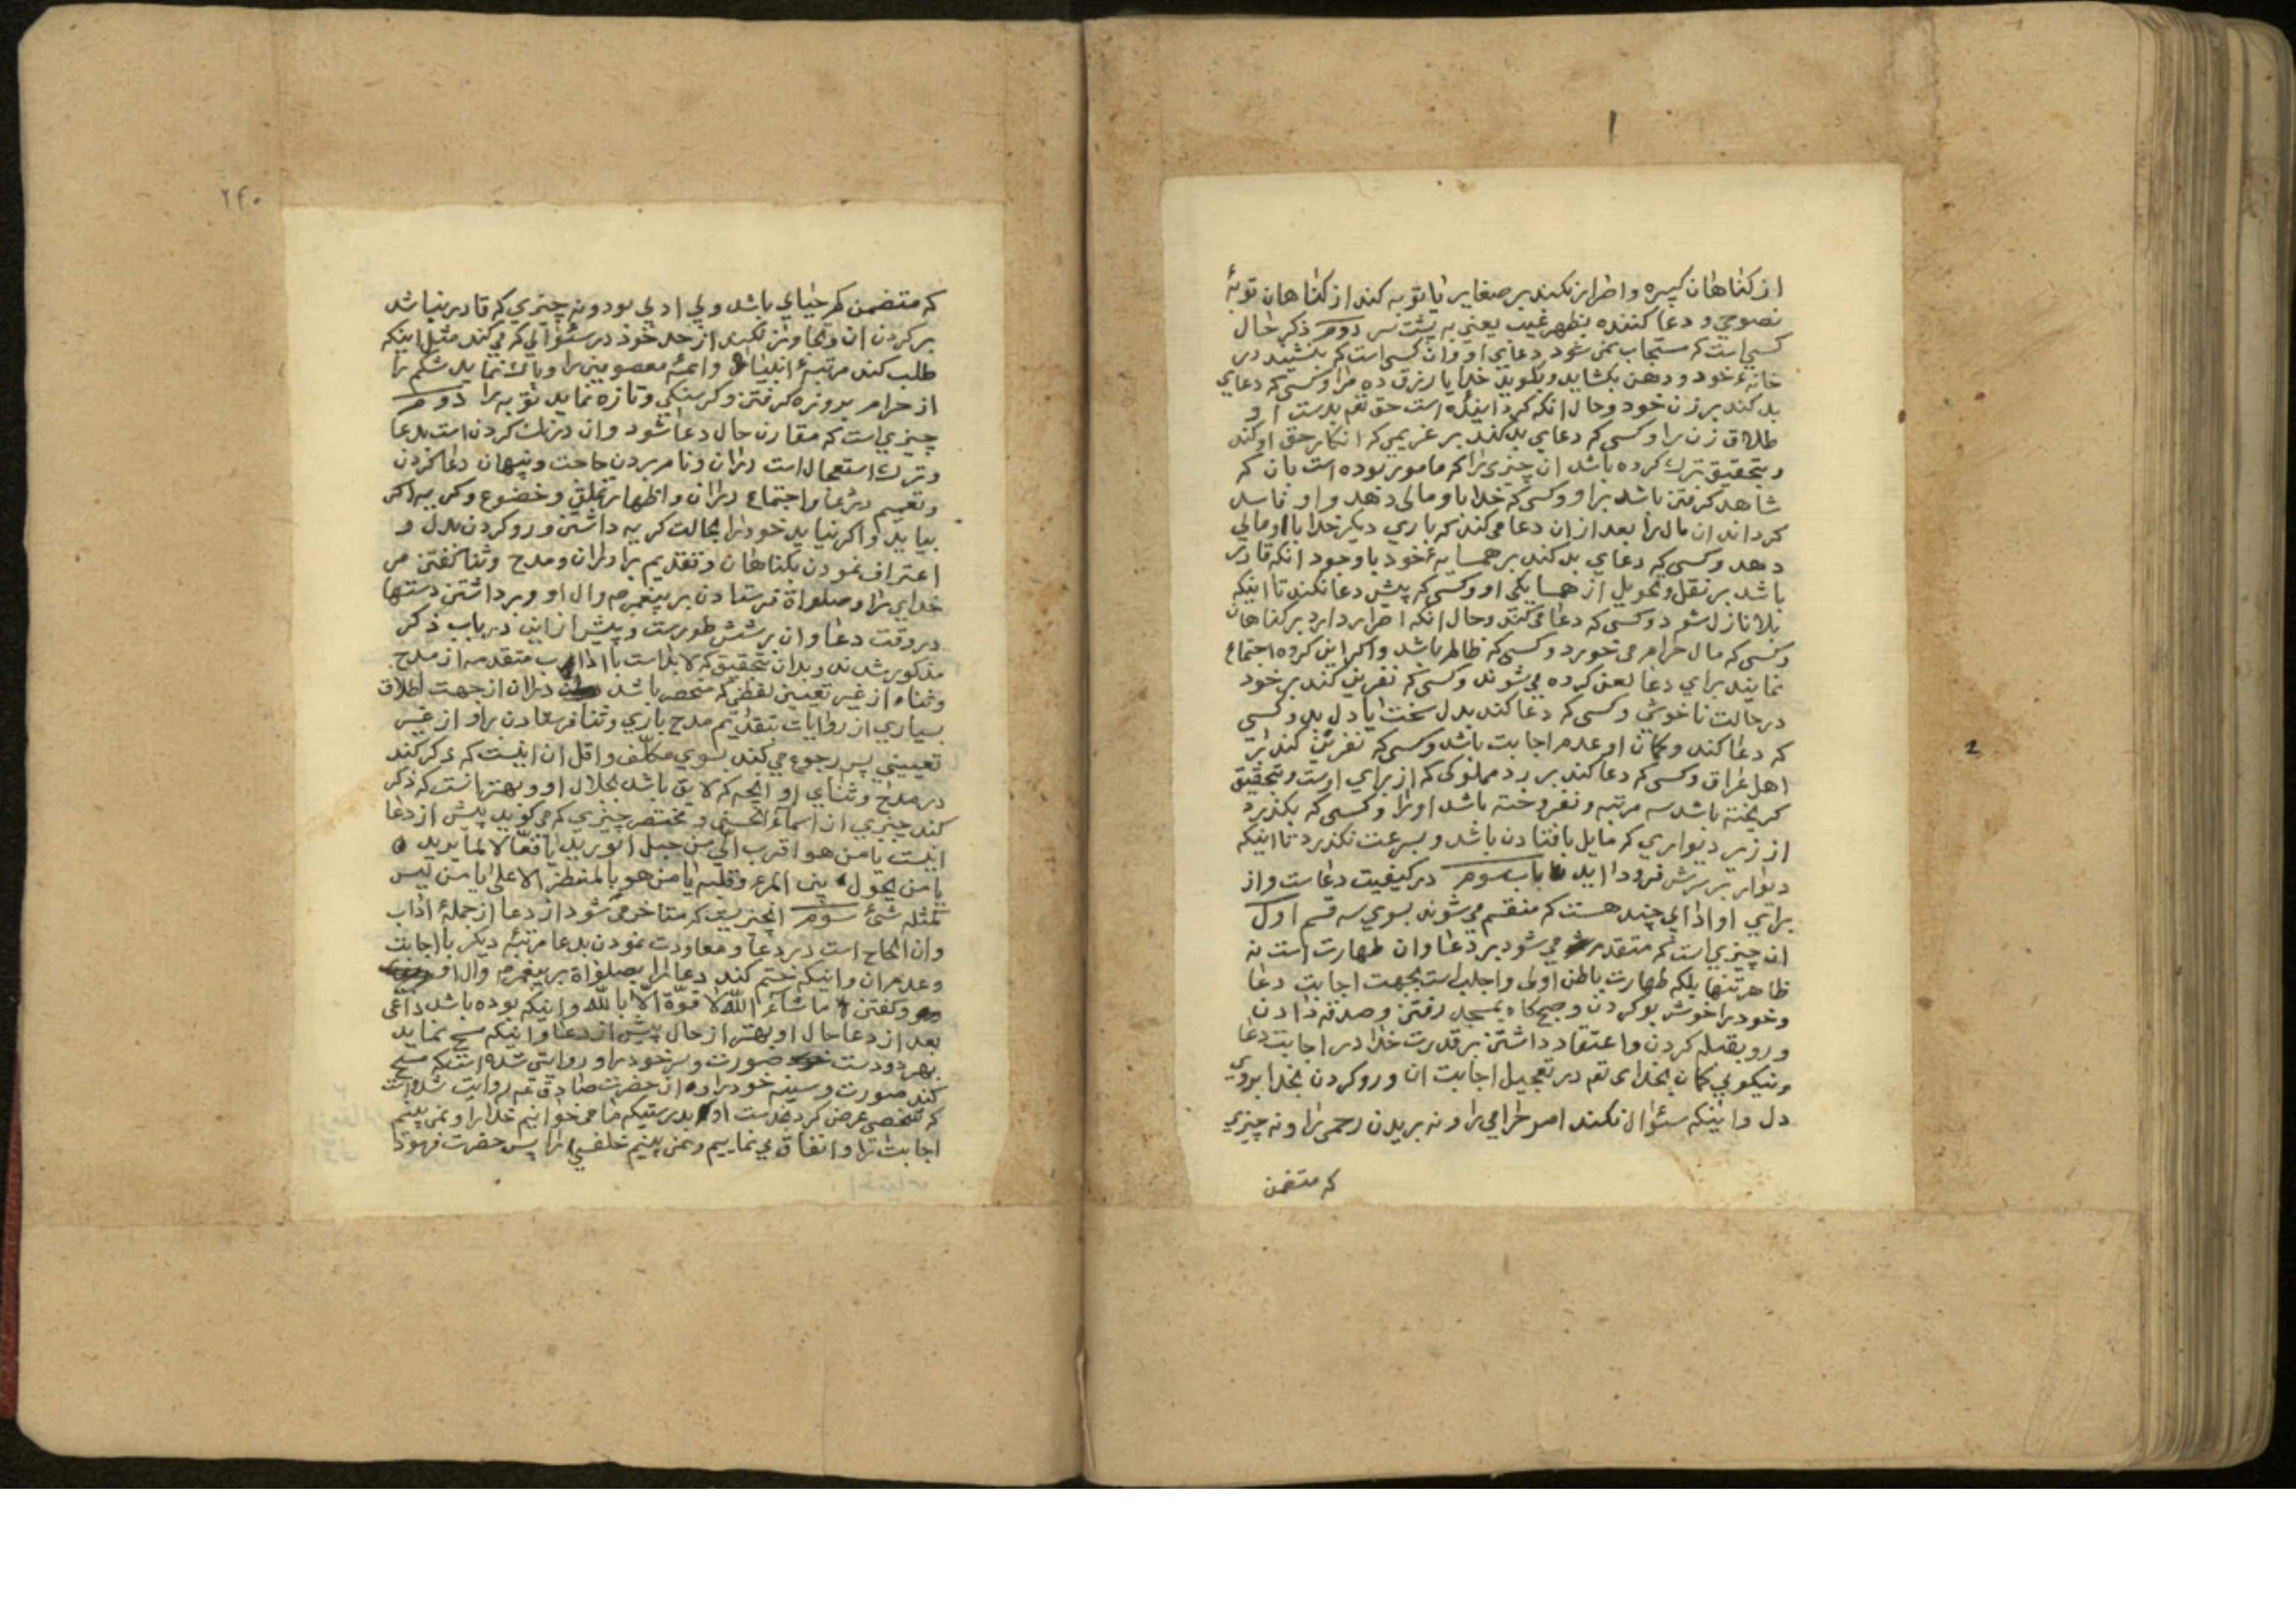 ا
از کناهان کبیره و اصرار نکند بر صغایر یا توبه کند از کناهان توبۀ
نصوحی و دعا کننده بظهر غیب یعنی به پشت سر دوم ذکر حال
کسی است که مستجاب نمی شود دعای او و ان کسی است که بنشیند در
خانۀ خود و دهن بکشاید و بکوید خدایا رزق ده مرا و کسی که دعای
بد کند بر زن خود و حال انکه کردانیده است حق تعم بدست او
طلاق زن را و کسی که دعای بد کند بر غریمی که انکار حق او کند
و بتحقیق ترک کرده باشد ان چیزی را که مامور بوده است بان که
شاهد کرفتن باشد بر او و کسی که خدا باو مالی دهد و او فاسد
کرداند ان مال را بعد از ان دعا می کند که باری دیکر خدا باو مالی
دهد و کسی که دعای بد کند بر همسایۀ خود با وجود انکه قادر
باشد بر نقل و تحویل از همسایکی او و کسی که پیش دعا نکند تا اینکه
بلا نازل شود و کسی که دعا می کند و حال انکه اصرار دارد بر کناهان
و کسی که مال حرام می خورد و کسی که ظالم باشد و اکر این کروه اجتماع
نمایند برای دعا لعن کرده می شوند و کسی که نفرین کند بر خود
در حالت ناخوشی و کسی که دعا کند بدل سخت یا دل بد و کسی
که دعا کند و کمان او عدم اجابت باشد و کسی که نفرین کند بر
اهل عراق و کسی که دعا کند بر رد مملوکی که از برای اوست و بتحقیق
کریخته باشد سه مرتبه و نفروخته باشد او را و کسی که بکذرد
از زیر دیواری که مایل بافتادن باشد و بسرعت نکذرد تا اینکه
دیوار بر سرش فرود اید باب سوم در کیفیت دعاست و از
برای او ادابی چند هست که منقسم می شوند بسوی سه قسم اول
ان چیزی است که متقدم می شود بر دعا و ان طهارت است نه
ظاهر تنها بلکه طهارت باطن اولی و اجلب است بجهت اجابت دعا
و خود را خوش بو کردن و صبح کاه بمسجد رفتن و صدقه دادن
و رو بقبله کردن و اعتقاد داشتن بر قدرت خدا در اجابت دعا
و نیکوی کمان بخدای تعم در تعجیل اجابت ان و رو کردن بخدا بروی
دل و اینکه سئوال نکند امر حرامی را و نه بریدن رحمی را و نه چیزی
که متضمن
2
۲۴۰
که متضمن کم حیای باشد و بی ادبی بود و نه چیزی که قادر نباشد
بر کردن ان و تجاوز نکند از حد خود در سئوالی که می کند مثل اینکه
طلب کند مرتبۀ انبیا و ائمۀ معصومین را و پاک نماید شکم را
از حرام بروزه کرفتن و کرسنکی و تازه نماید توبه را دوم
چیزی است که مقارن حال دعا شود و ان درنک کردن است بدعا
و ترک استعجال است دران و نام بردن حاجت و پنهان دعا کردن
و تعمیم در دعا و اجتماع دران و اظهار تملق و خضوع و کریه اکر
بیاید و اکر نیاید خود را بحالت کریه داشتن و رو کردن بدل و
اعتراف نمودن بکناهان و تقدیم برادران و مدح و ثنا کفتن مر
خدای را و صلواة فرستادن بر پیغمبر ص و ال او و برداشتن دستها
در وقت دعا و ان بر شش طورست و پیش از این در باب ذکر
مذکور شدند و بدان بتحقیق که لابداست با اداب متقدمه از مدح
و ثناء از غیر تعیین لفظی که منحصر باشد دران از جهت اطلاق
بسیاری از روایات بتقدیم مدح باری و ثنا فرستادن براو از غیر
تعیینی پس رجوع می کند بسوی مکلف و اقل ان اینست که ذکر کند
در مدح و ثنای او انچه که لایق باشد بجلال او و بهتر انست که ذکر
کند چیزی از اسماء الحسنی و مختصر چیزی که می کوید پیش از دعا
اینست یا من هو اقرب الی من حبل الورید یا فعالا لما یرید
یا من یحول بین المرء و قلبه یا من هو بالمنظر الاعلی یا من لیس
کمثله شئ سوم انچیزیست که متاخر می شود از دعا از جملۀ اداب
و ان الحاح است در دعا و معاودت نمودن بدعا مرتبۀ دیکر با اجابت
و عدم ان و اینکه ختم کند دعا را بصلواة بر پیغمبر ص و ال او
و کفتن ما شاء الله لا قوّة الّا بالله و اینکه بوده باشد داعی
بعد از دعا حال او بهتر از حال پیش از دعا و اینکه مسح نماید
بهر دو دست صورت و سر خود را و روایتی شده است که مسح
کند صورت و سینه خود را و از حضرت صادق عم روایت شده است
که شخصی عرض کرد بخدمت او بدرستیکه ما می خوانیم خدا را و نمی بینیم
اجابت را و انفاق می نماییم و نمی بینیم خلفی را پس حضرت فرمود